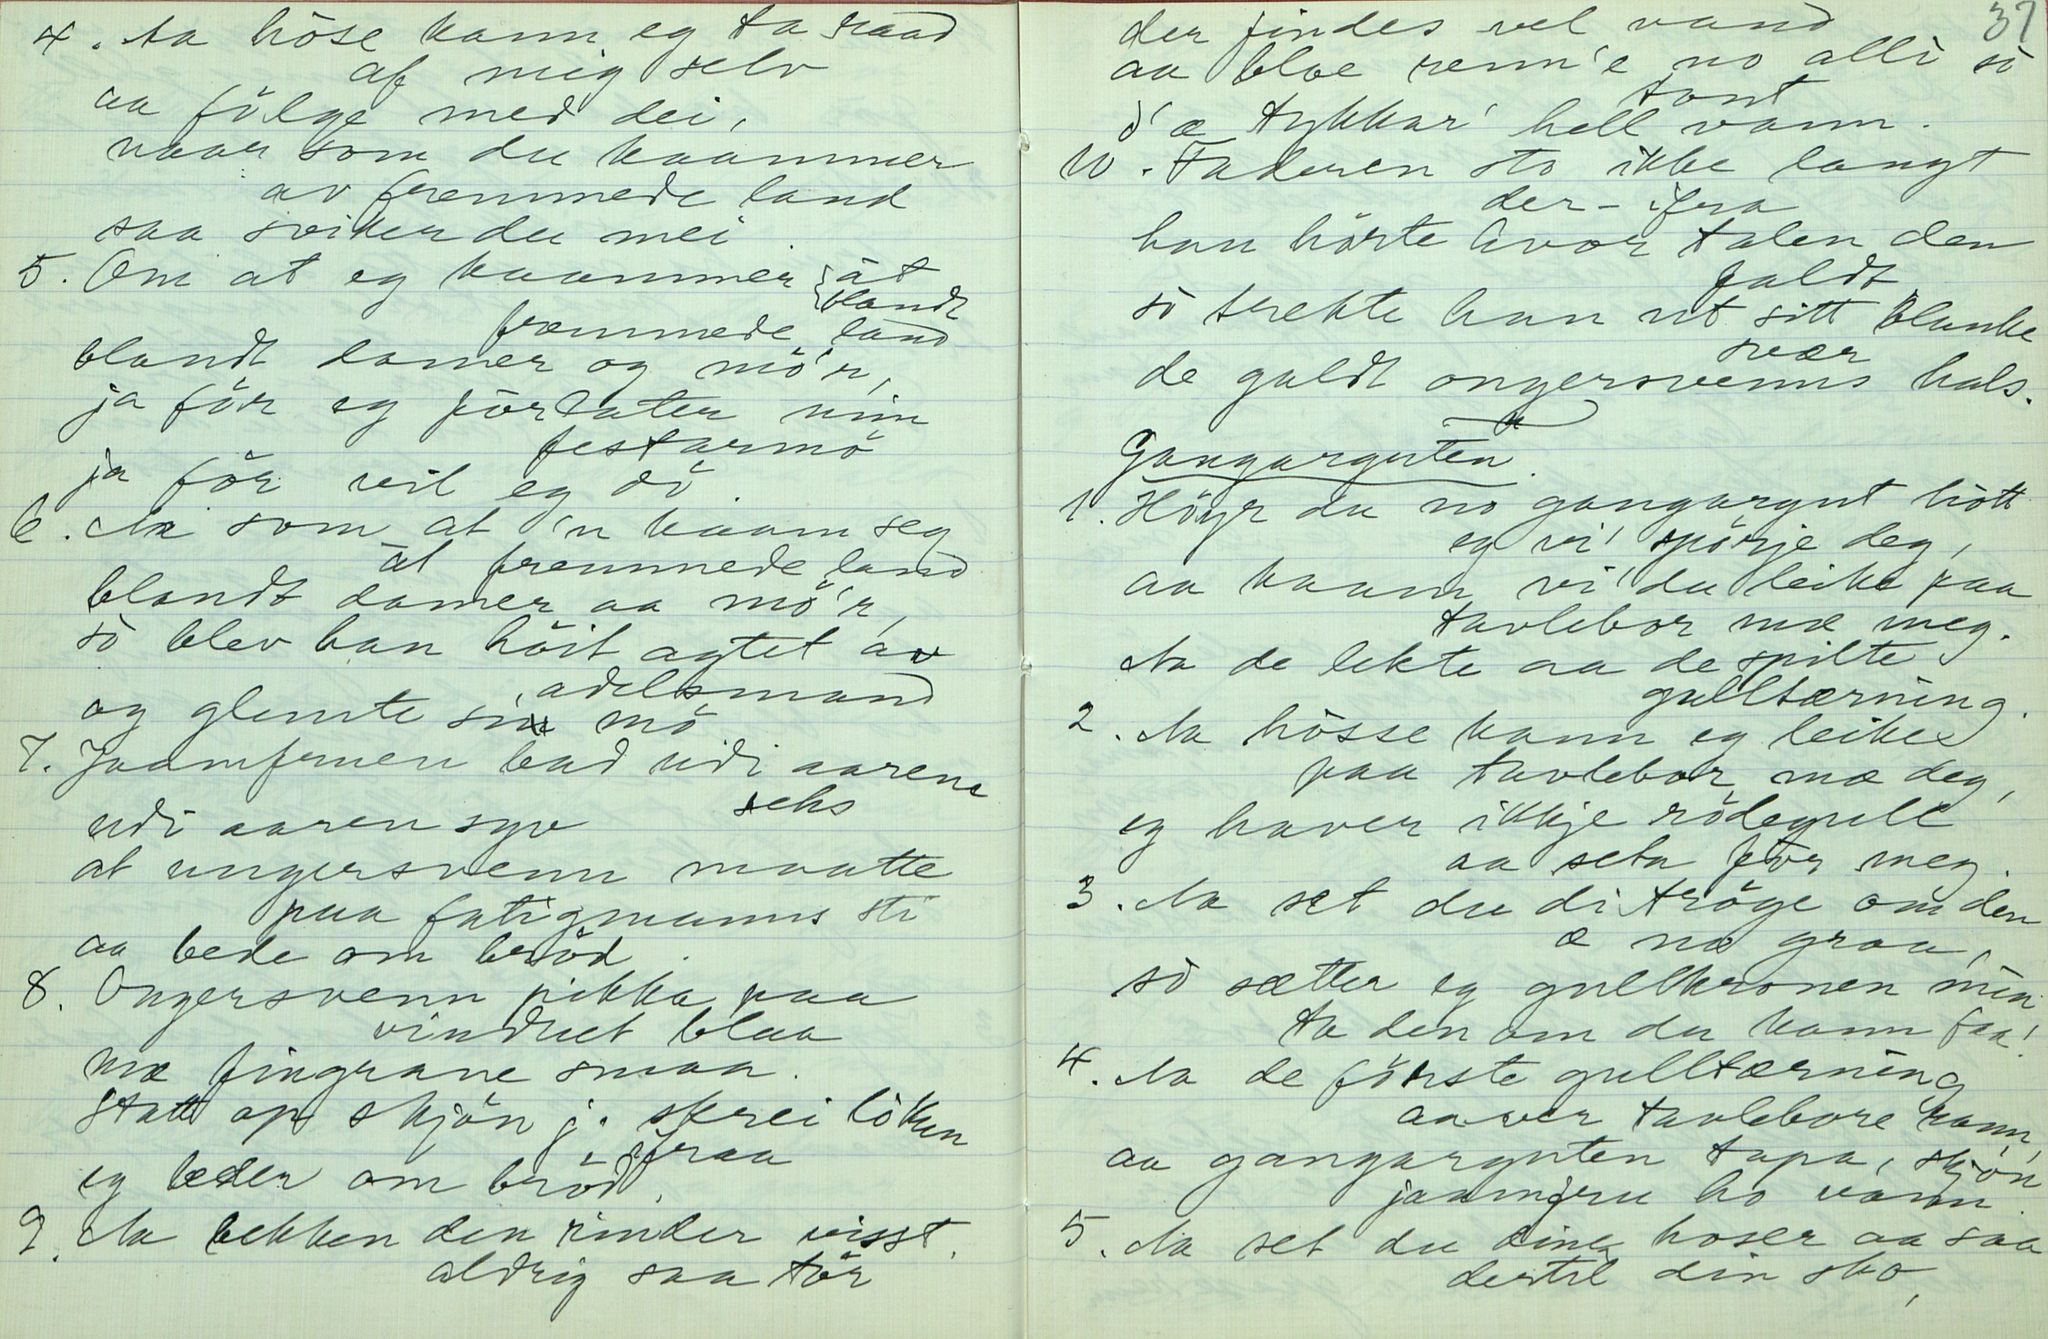 4. Aa höse kann eg ta raad
af mig selv
aa fölge med dei,
naar som du kaammer
av fremmede land
saa sviker du mei.
5. Om at eg kaammer åt
blandt
fremmede land
blandt damer og mö'r,
ja för eg forlater min
festarmö
ja för vil eg dö.
6. Aa som at 'n kaam seg
åt fremmede land
blandt damer aa mö'r,
så blev han höit agtet av
adelsmand
og glemte sin mö.
7. Jaamfruen bad udi aarene
seks
udi aaren syv
at ungersvenn maatte
paa fatigmanns sti
aa bede om bröd.
8. Ongersvenn pikka paa
vinduet blaa
mæ fingrane smaa.
Statt op skjön j. skrei lökun
ifraa
eg beder om bröd.
9. Aa bekken den rinder visst
aldrig saa tör
37
der findes vel vand
aa bloe renn'e no alli så
tont
d'æ tykkar' hell vann.
10. Faderen sto ikke langt
der-ifra
han hörte hvor talen den
faldt
så trekte han ut sitt blanke
svær
de galdt ongersvenns hals.
Gangarguten.
1. Höyr du no gangargut hött
eg vi' spörje deg,
aa kaam, vi' du leike paa
tavlebor mæ meg.
Aa de lekte aa de spilte
gulltærning.
2. Aa hösse kann eg leike
paa tavlebor mæ deg,
eg haver ikkje rödegull
aa seta för meg.
3. Aa set du di tröge om den
æ na graa,
så sætter eg gullkronen min
ta den om du kann faa!
4. Aa de förste gulltærning
aaver tavlebore rann,
aa gangarguten tapa, skjön
jaamfru ho vann.
5. Aa set du dine hoser aa saa
dertil din sko,